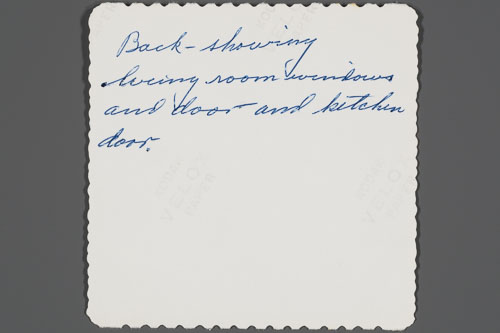 Back - showing
living room windows
and door and kitchen
door.
KODAK
VELOX
PAPER
KODAK
VELOX
PAPER